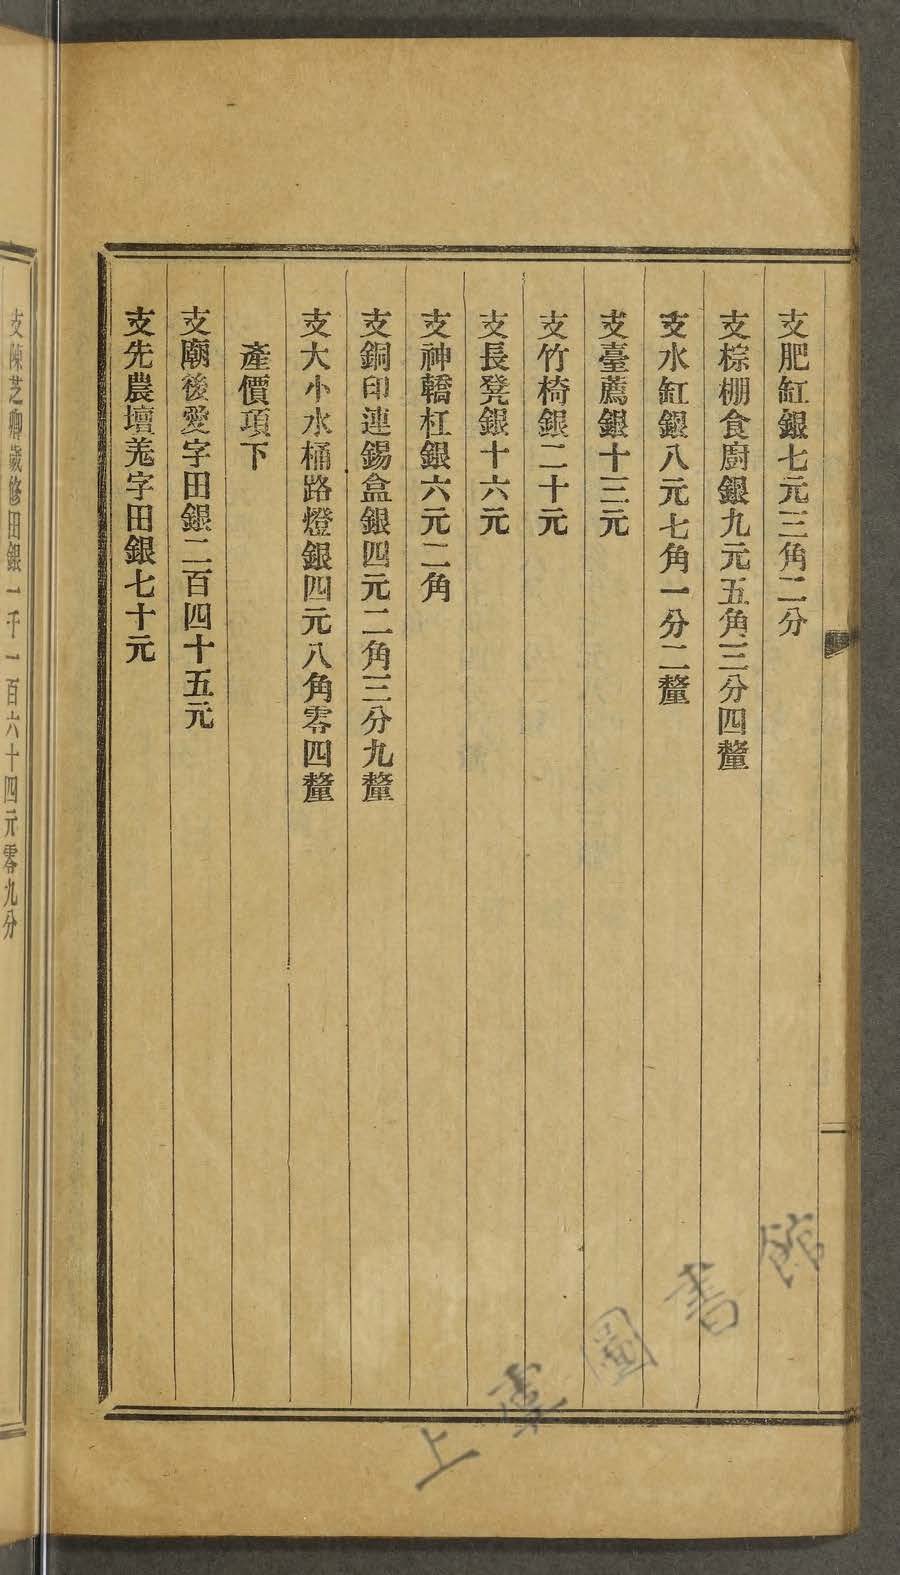 支肥缸銀七元三角二分
支棕棚食廚銀九元五角三分四釐
支水缸銀八元七角一分二釐
支臺薦銀十三元
支竹椅銀二十元
支長凳銀十六元
支神轎杠銀六元二角
支銅印連錫盒銀四元二角三分九釐
支大小水桶路燈銀四元八角零四釐
產價項下
支廟後愛字田銀二百四十五元
支先農壇羌字田銀七十元
支陳芝卿歲修田銀一千一百六十四元零九分
上虞圖書館